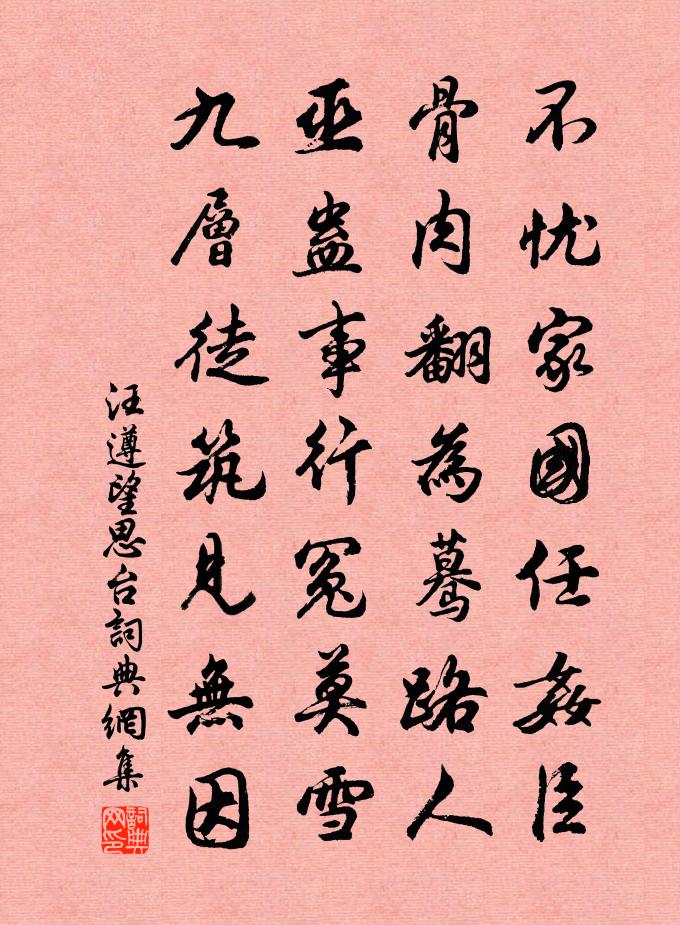 不忧家國任姦臣
骨肉翻為驀路人
巫蛊事行冤莫雪
九層徒筑見無因
汪遵望思台詞典網集
詞典网印